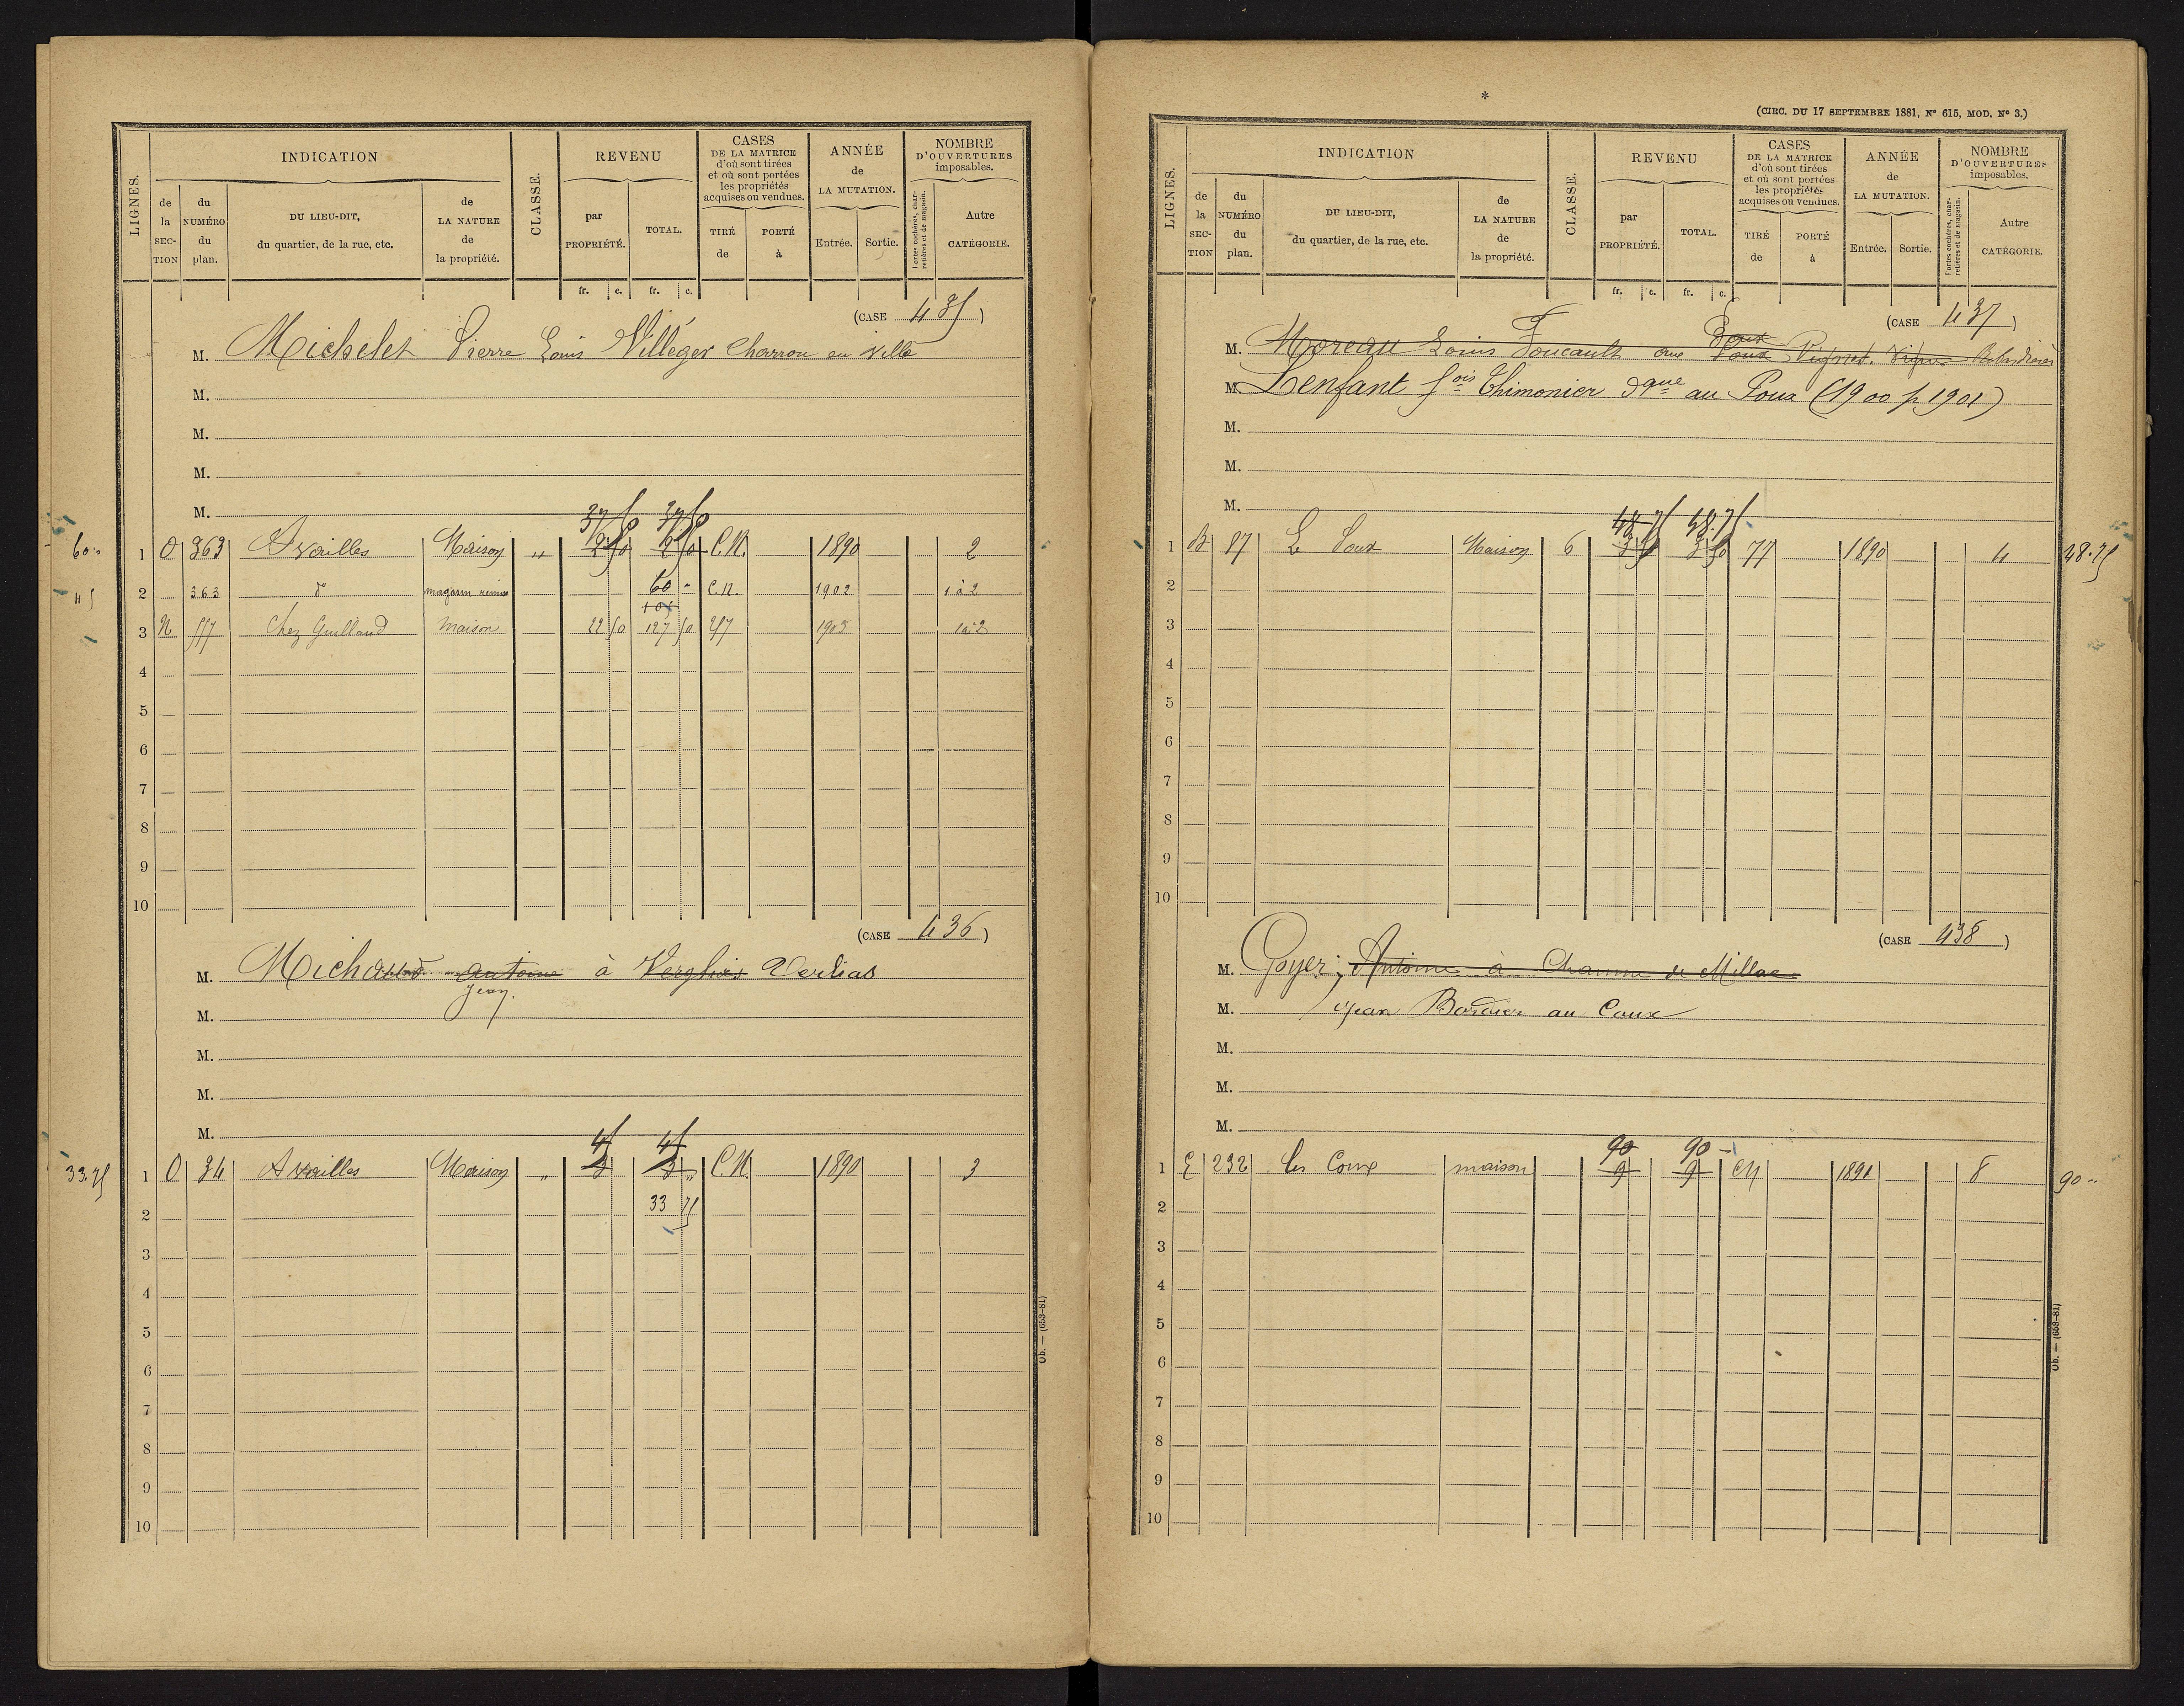 LIGNES.
INDICATION
de la SECTION
du NUMÉRO du plan.
DU LIEU-DIT, du quartier, de la rue, etc.
de LA NATURE de la propriété.
CLASSE.
REVENU
par PROPRIÉTÉ.
TOTAL.
CASES DE LA MATRICE d'où sont tirées et où sont portées les propriétés acquises ou vendues.
TIRÉ de
PORTÉ à
ANNÉE de LA MUTATION.
Entrée.
Sortie.
NOMBRE D'OUVERTURES imposables.
Portes cochères, charretières et de magasin.
Autre CATÉGORIE.
fr. c. fr. c.
(CASE 435)
M. Michelet Pierre Louis Villéger Charron en ville
M.
M.
M.
M.
37 50 37 50
60 " 1 O 363 Availles Maison " 2 50 2 50 C.N. 1890 2
45 2 363 do magasin remise 60 - C.N. 1902 1 à 2
105
3 N 557 Chez Guilland Maison 22 50 127 50 257 1905 1 à 2
4
5
6
7
8
9
10
(CASE 436)
M. Michaud Antoine à Verglias Verlias
Jean
M.
M.
M.
M.
45 45
33.75 1 O 34 Availles Maison " 3 3 " C.N. 1890 3
2 33 75
3
4
5
6
7
8
9
10
Ob. — (653-81)
*
(CIRC. DU 17 SEPTEMBRE 1881, N° 615, MOD. N° 3.)
LIGNES.
INDICATION
de la SECTION
du NUMÉRO du plan.
DU LIEU-DIT, du quartier, de la rue, etc.
de LA NATURE de la propriété.
CLASSE.
REVENU
par PROPRIÉTÉ.
TOTAL.
CASES DE LA MATRICE d'où sont tirées et où sont portées les propriétés acquises ou vendues.
TIRÉ de
PORTÉ à
ANNÉE de LA MUTATION.
Entrée.
Sortie.
NOMBRE D'OUVERTURES imposables.
Portes cochères, charretières et de magasin.
Autre CATÉGORIE.
fr. c. fr. c.
(CASE 437)
M. Moreau Louis Foucault
M. Lenfant fois Thimonier dque au Poux (1900 p 1901)
M.
M.
M.
48 75 48.75
1 B 87 Le Poux Maison 6 3 50 3 50 77 1890 4 48.75
2
3
4
5
6
7
8
9
10
(CASE 438)
M. Goyer, Antoine à Chaume de Millac
M. Jean Bordier au Coux
M.
M.
M.
90 90 -
1 E 232 les Coux maison 9 9 CN 1891 8 90 "
2
3
4
5
6
7
8
9
10
Ob. — (653-81)